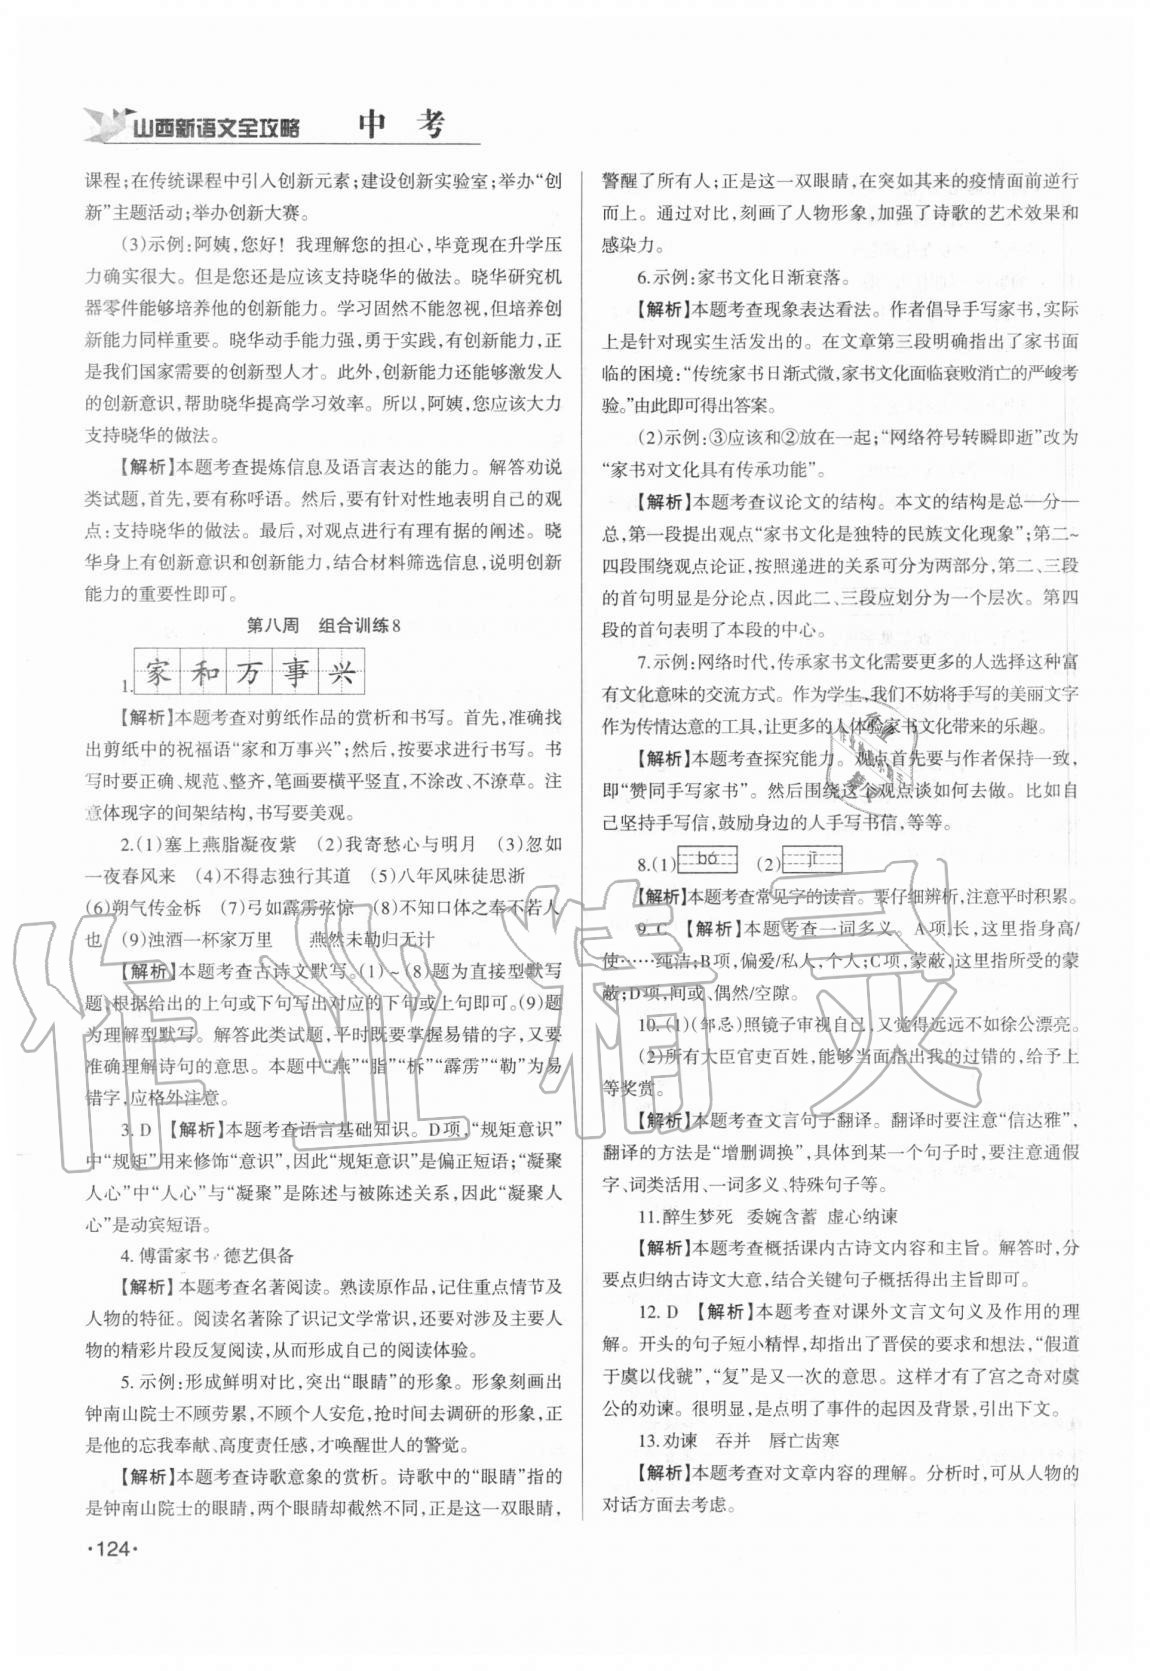 山西新语文全攻略 中 考
课程；在传统课程中引入创新元素；建设创新实验室；举办“创
新”主题活动；举办创新大赛。
(3)示例：阿姨，您好！我理解您的担心，毕竟现在升学压
力确实很大。但是您还是应该支持晓华的做法。晓华研究机
器零件能够培养他的创新能力。学习固然不能忽视，但培养创
新能力同样重要。晓华动手能力强，勇于实践，有创新能力，正
是我们国家需要的创新型人才。此外，创新能力还能够激发人
的创新意识，帮助晓华提高学习效率。所以，阿姨，您应该大力
支持晓华的做法。
【解析】本题考查提炼信息及语言表达的能力。解答劝说
类试题，首先，要有称呼语。然后，要有针对性地表明自己的观
点：支持晓华的做法。最后，对观点进行有理有据的阐述。晓
华身上有创新意识和创新能力，结合材料筛选信息，说明创新
能力的重要性即可。
第八周 组合训练8
1. 家和万事兴
【解析】本题考查对剪纸作品的赏析和书写。首先，准确找
出剪纸中的祝福语“家和万事兴”；然后，按要求进行书写。书
写时要正确、规范、整齐，笔画要横平竖直，不涂改、不潦草。注
意体现字的间架结构，书写要美观。
2.(1)塞上燕脂凝夜紫 (2)我寄愁心与明月 (3)忽如
一夜春风来 (4)不得志独行其道 (5)八年风味徒思浙
(6)朔气传金柝 (7)弓如霹雳弦惊 (8)不知口体之奉不若人
也 (9)浊酒一杯家万里 燕然未勒归无计
【解析】本题考查古诗文默写。(1)~(8)题为直接型默写
题，根据给出的上句或下句写出对应的下句或上句即可。(9)题
为理解型默写。解答此类试题，平时既要掌握易错的字，又要
准确理解诗句的意思。本题中“燕”“脂”“柝”“霹雳”“勒”为易
错字，应格外注意。
3. D 【解析】本题考查语言基础知识。D项，“规矩意识”
中“规矩”用来修饰“意识”，因此“规矩意识”是偏正短语；“凝聚
人心”中“人心”与“凝聚”是陈述与被陈述关系，因此“凝聚人
心”是动宾短语。
4. 傅雷家书 德艺俱备
【解析】本题考查名著阅读。熟读原作品，记住重点情节及
人物的特征。阅读名著除了识记文学常识，还要对涉及主要人
物的精彩片段反复阅读，从而形成自己的阅读体验。
5. 示例：形成鲜明对比，突出“眼睛”的形象。形象刻画出
钟南山院士不顾劳累，不顾个人安危，抢时间去调研的形象，正
是他的忘我奉献、高度责任感，才唤醒世人的警觉。
【解析】本题考查诗歌意象的赏析。诗歌中的“眼睛”指的
是钟南山院士的眼睛，两个眼睛却截然不同，正是这一双眼睛，
·124·
警醒了所有人；正是这一双眼睛，在突如其来的疫情面前逆行
而上。通过对比，刻画了人物形象，加强了诗歌的艺术效果和
感染力。
6.示例：家书文化日渐衰落。
【解析】本题考查现象表达看法。作者倡导手写家书，实际
上是针对现实生活发出的。在文章第三段明确指出了家书面
临的困境：“传统家书日渐式微，家书文化面临衰败消亡的严峻考
验。”由此即可得出答案。
(2)示例：③应该和②放在一起；“网络符号转瞬即逝”改为
“家书对文化具有传承功能”。
【解析】本题考查议论文的结构。本文的结构是总—分—
总，第一段提出观点“家书文化是独特的民族文化现象”；第二~
四段围绕观点论证，按照递进的关系可分为两部分，第二、三段
的首句明显是分论点，因此二、三段应划分为一个层次。第四
段的首句表明了本段的中心。
7.示例：网络时代，传承家书文化需要更多的人选择这种富
有文化意味的交流方式。作为学生，我们不妨将手写的美丽文字
作为传情达意的工具，让更多的人体验家书文化带来的乐趣。
【解析】本题考查探究能力。观点首先要与作者保持一致，
即“赞同手写家书”。然后围绕这个观点谈如何去做。比如自
己坚持手写信，鼓励身边的人手写书信，等等。
8.(1) bó (2) jī
【解析】本题考查常见字的读音。要仔细辨析，注意平时积累。
9. C 【解析】本题考查一词多义。A项，长，这里指身高/
使……纯洁；B项，偏爱/私人，个人；C项，蒙蔽，这里指所受的蒙
蔽；D项，间或、偶然/空隙。
10. (1)(邹忌)照镜子审视自己，又觉得远远不如徐公漂亮。
(2)所有大臣官吏百姓，能够当面指出我的过错的，给予上
等奖赏。
【解析】本题考查文言句子翻译。翻译时要注意“信达雅”，
翻译的方法是“增删调换”，具体到某一个句子时，要注意通假
字、词类活用、一词多义、特殊句子等。
11.醉生梦死 委婉含蓄 虚心纳谏
【解析】本题考查概括课内古诗文内容和主旨。解答时，分
要点归纳古诗文大意，结合关键句子概括得出主旨即可。
12. D 【解析】本题考查对课外文言文句义及作用的理
解。开头的句子短小精悍，却指出了晋侯的要求和想法，“假道
于虞以伐虢”，“复”是又一次的意思。这样才有了宫之奇对虞
公的劝谏。很明显，是点明了事件的起因及背景，引出下文。
13.劝谏 吞并 唇亡齿寒
【解析】本题考查对文章内容的理解。分析时，可从人物的
对话方面去考虑。
作业精灵